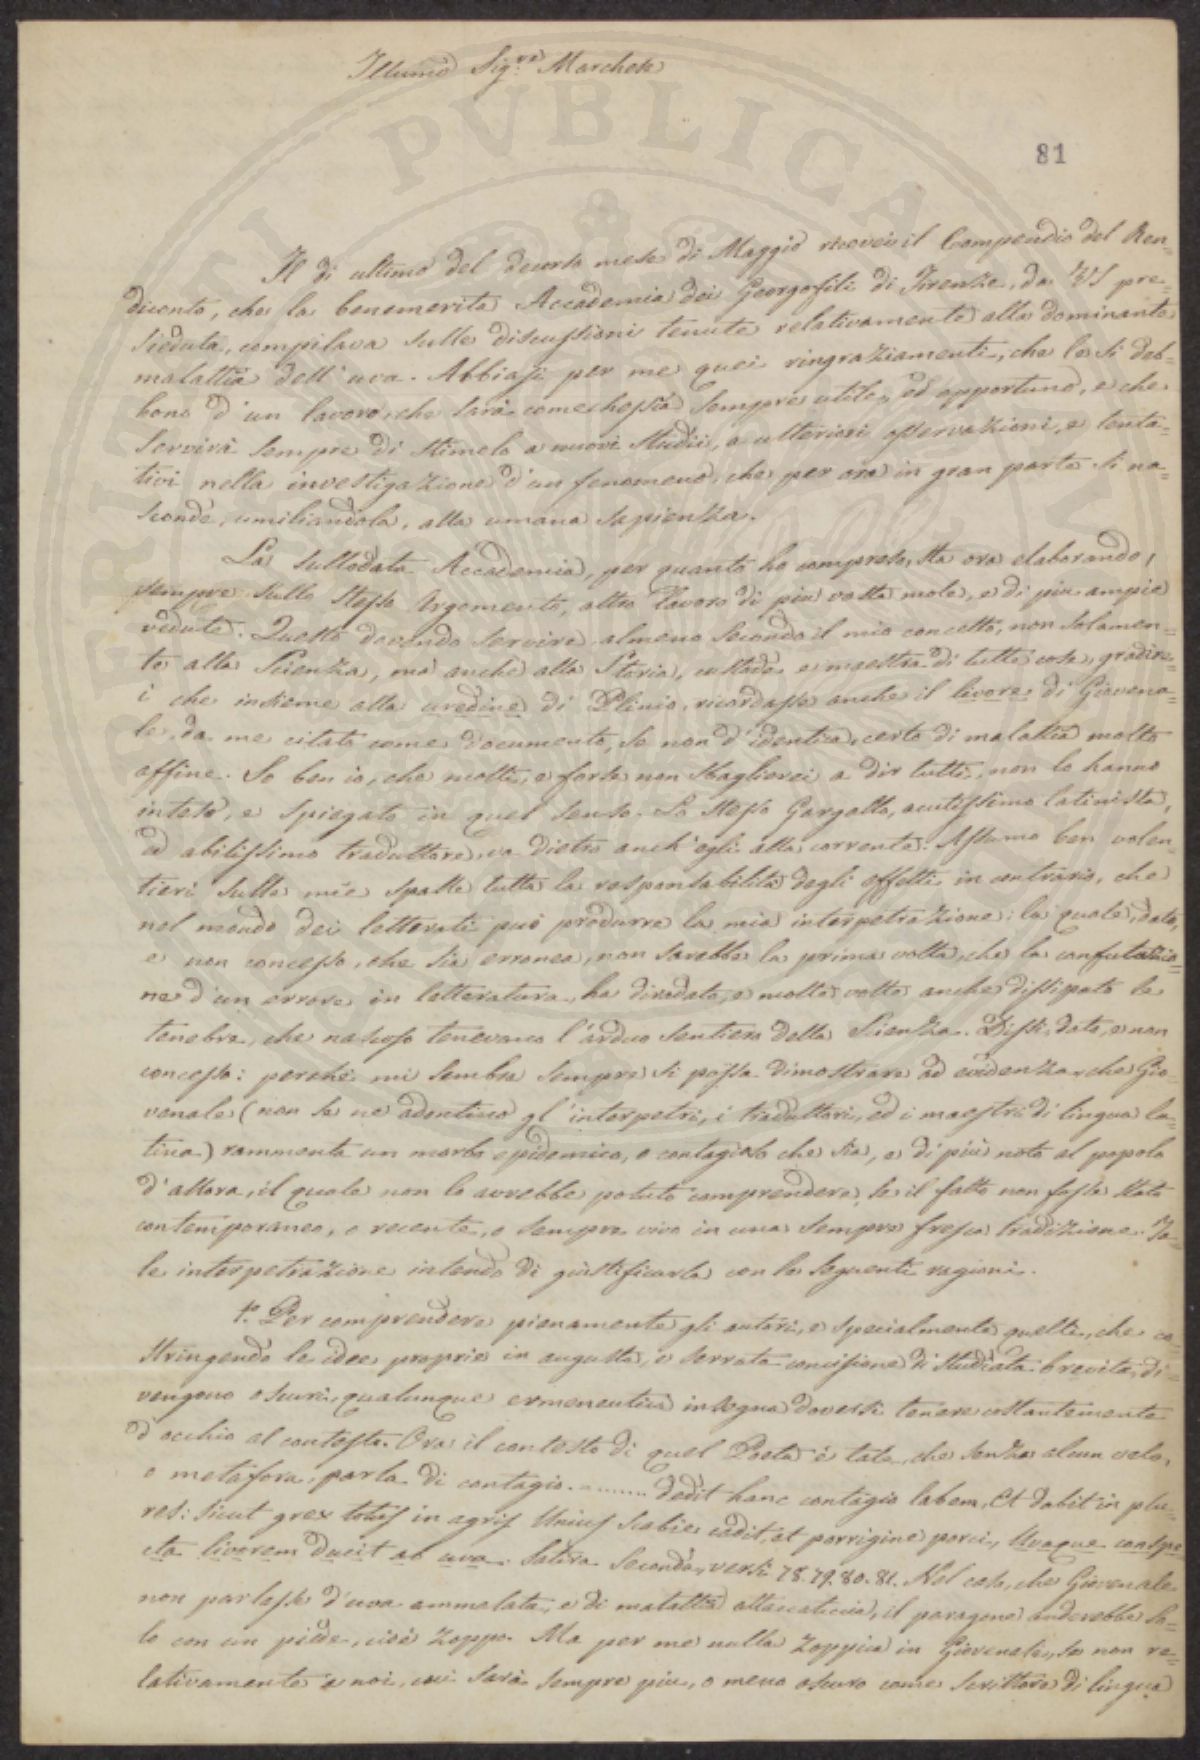 Illumo Sig.re Marchese
81
Il dì ultimo del decorso mese di Maggio ricevei il Compendio del Ren-
diconto, che la benemerita Accademia dei Georgofili di Firenze, da VS pre-
sieduta, compilava sulle discussioni tenute relativamente alla dominante
malattia dell'uva. Abbiasi per me quei ringraziamenti, che le si deb-
bono d'un lavoro, che sarà comechessia sempre utile, ed opportuno, e che
servirà sempre di stimolo a nuovi studii, a ulteriori osservazioni, e tenta-
tivi nella investigazione d'un fenomeno, che per ora in gran parte si na-
sconde, umiliandola, alla umana sapienza.
La sullodata Accademia, per quanto ho compreso, sta ora elaborando,
sempre sullo stesso argomento, altro lavoro di più vasta mole, e di più ampie
vedute. Questo dovendo servire almeno secondo il mio concetto, non solamen-
te alla Scienza, ma anche alla Storia, custode e maestra di tutte cose, gradire-
i che insieme alla uredine di Plinio, ricordasse anche il livore di Giovena-
le, da me citato come documento, se non d'identica, certo di malattia molto
affine. So ben io, che molti, e forse non sbaglierei a dir tutti, non lo hanno
inteso, e spiegato in quel senso. Lo stesso Gargallo, acutissimo latinista,
ed abilissimo traduttore, va dietro anch'egli alla corrente. Assumo ben volen-
tieri sulle mie spalle tutta la responsabilità degli effetti in contrario, che
nel mondo dei letterati può produrre la mia interpetrazione: la quale, dato,
e non concesso, che sia erronea, non sarebbe la prima volta, che la confutazio-
ne d'un errore in letteratura, ha diradate, e molte volte anche dissipate le
tenebre, che nascoso tenevano l'arduo sentiero della Scienza. Dissi, dato, e non
concesso: perchè mi sembra sempre si possa dimostrare ad evidenza, che Gio-
venale (non se ne adontino gl'interpetri, i traduttori, ed i maestri di lingua la-
tina) rammenta un morbo epidemico, o contagioso che sia, e di più noto al popolo
d'allora, il quale non lo avrebbe potuto comprendere, se il fatto non fosse stato
contemporaneo, o recente, o sempre vivo in una sempre fresca tradizione. Ta-
le interpetrazione intendo di giustificarla con le seguenti ragioni.
1.° Per comprendere pienamente gli autori, e specialmente quelli, che co-
stringendo le idee proprie in angusta, e serrata concisione di studiata brevità, di-
vengono oscuri, qualunque ermeneutica insegna doversi tenere costantemente
d'occhio al contesto. Ora il contesto di quel Poeta è tale, che senza alcun velo,
o metafora, parla di contagio. ........ dedit hanc contagio labem, Et dabit in plu-
res: sicut grex totus in agris Unius scabie cadit, et porrigine porci, Uvaque conspe-
cta livorem ducit ab uva. Satira Seconda, versi 78. 79. 80. 81. Nel caso, che Giovenale
non parlasse d'uva ammalata, e di malattia attaccaticcia, il paragone anderebbe so-
lo con un piede, cioè zoppo. Ma per me nulla zoppica in Giovenale, se non re-
lativamente a noi, cui sarà sempre più, o meno oscuro come scrittore di lingua